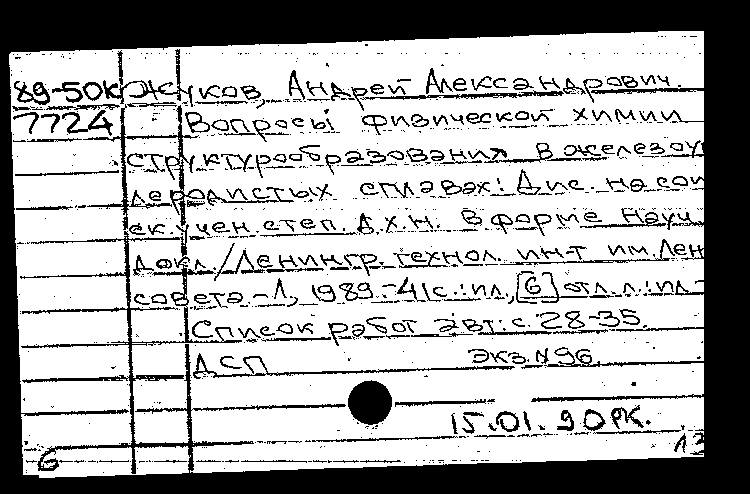 89-50к Жуков, Андрей Александрович.
7724 Вопросы физической химии
структурообразования в железоу
леродистых сплавах: Дис. на сои
ск. учен. степ. д.х.н. в форме науч.
докл./Ленингр. технол. ин-т им. Лен
совета.-Л, 1989.-41с.:ил, [6] отл. л.:ил-
Список работ авт: с. 28-35.
ДСП экз. N 96.
15.01.90 РК.
6 13